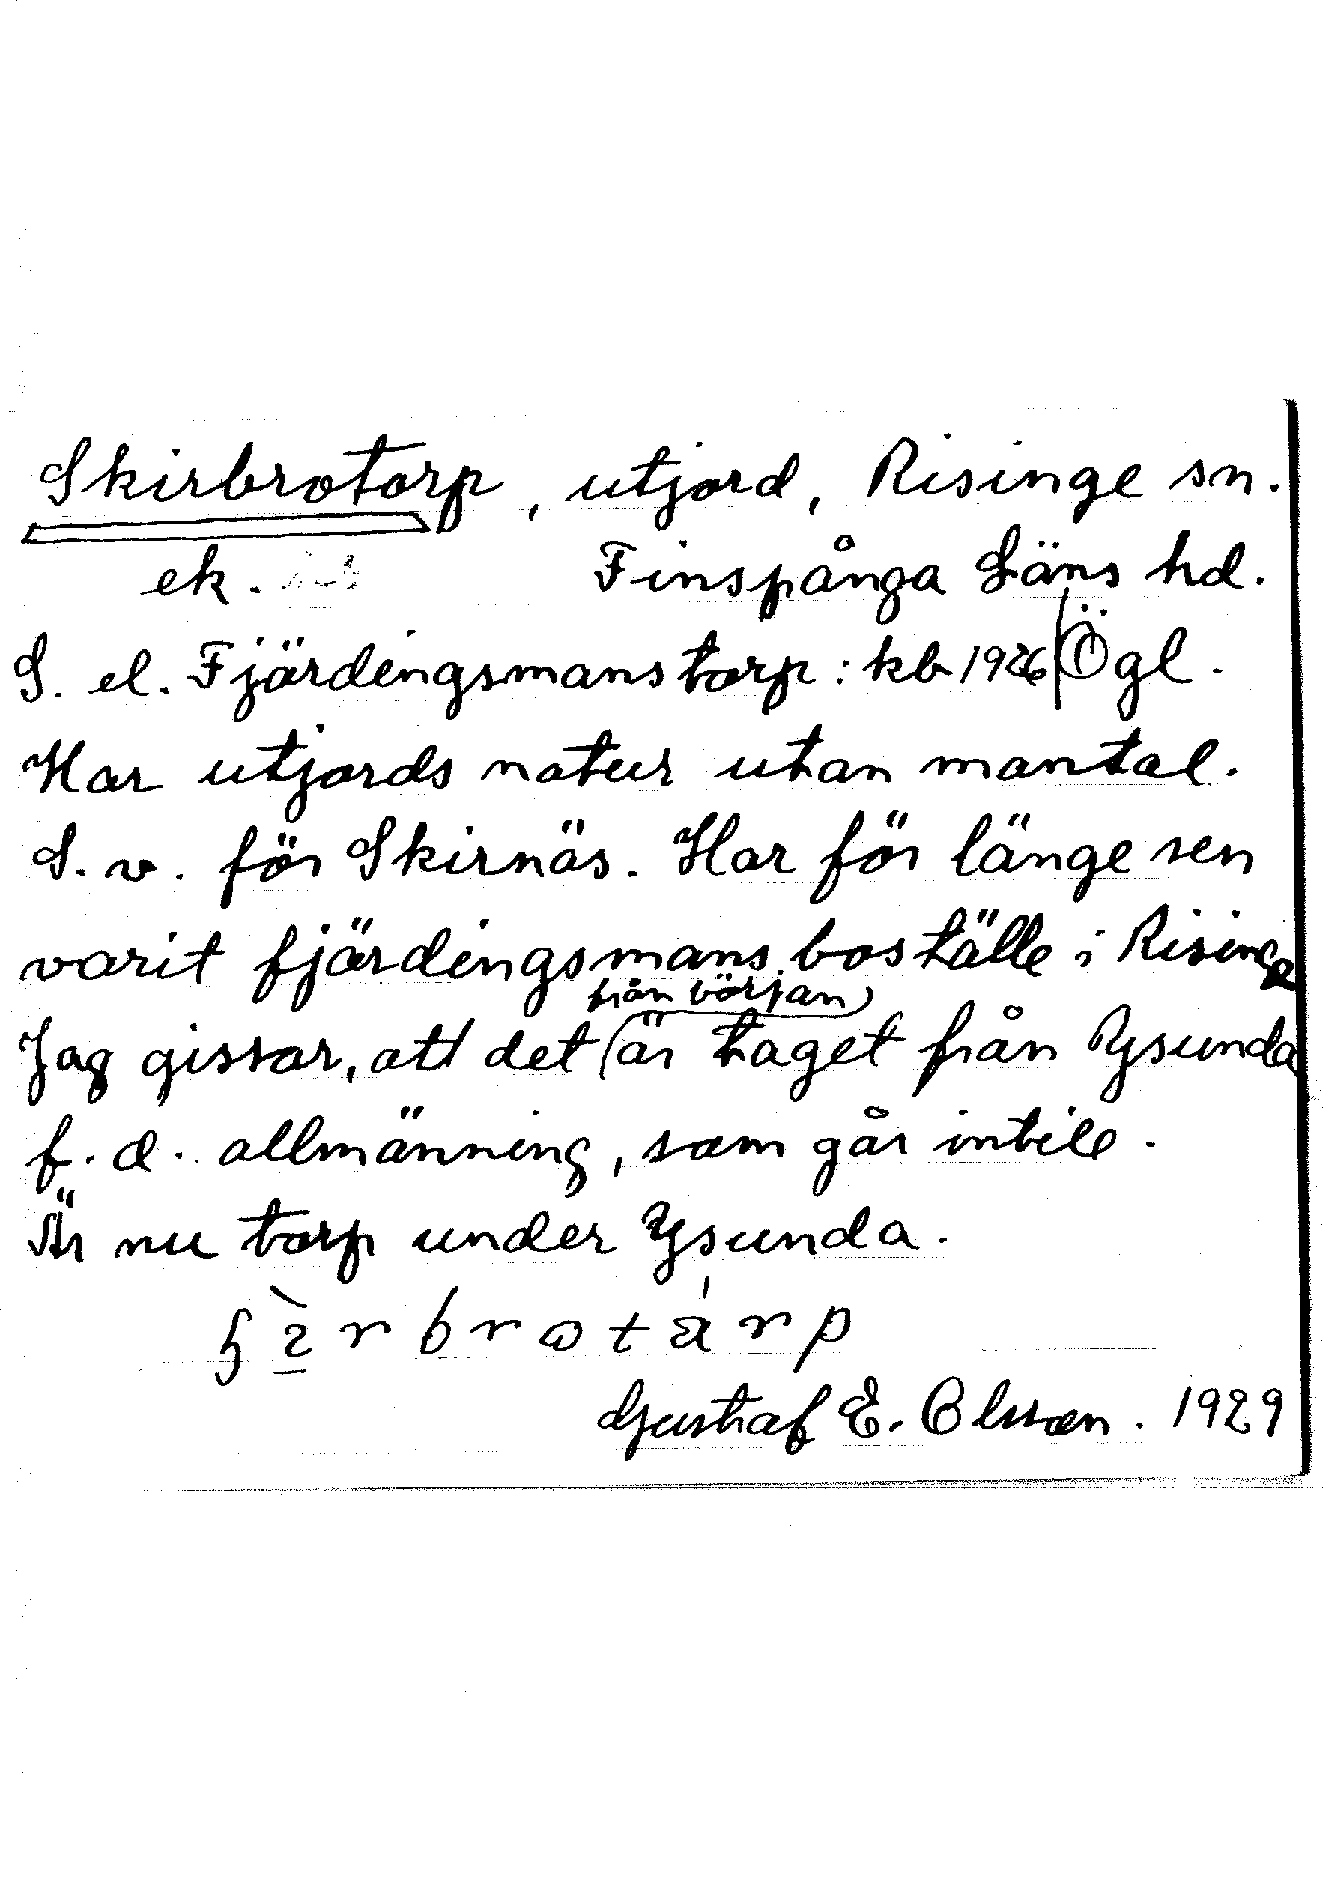 Skirbrotorp, utjord, Risinge sn.
ek. Finspånga Läns hd.
S. el. Fjärdingsmanstorp: kb 1926 Ögl.
Har utjords natur utan mantal.
S. v. för Skirnäs. Har för länge sen
varit fjärdingsmansboställe i Risinge
från början
Jag gissar, att det är taget från Ysunda
f. d. allmänning, som går intill.
Är nu torp under Ysunda.
Gustaf E. Olsson. 1929